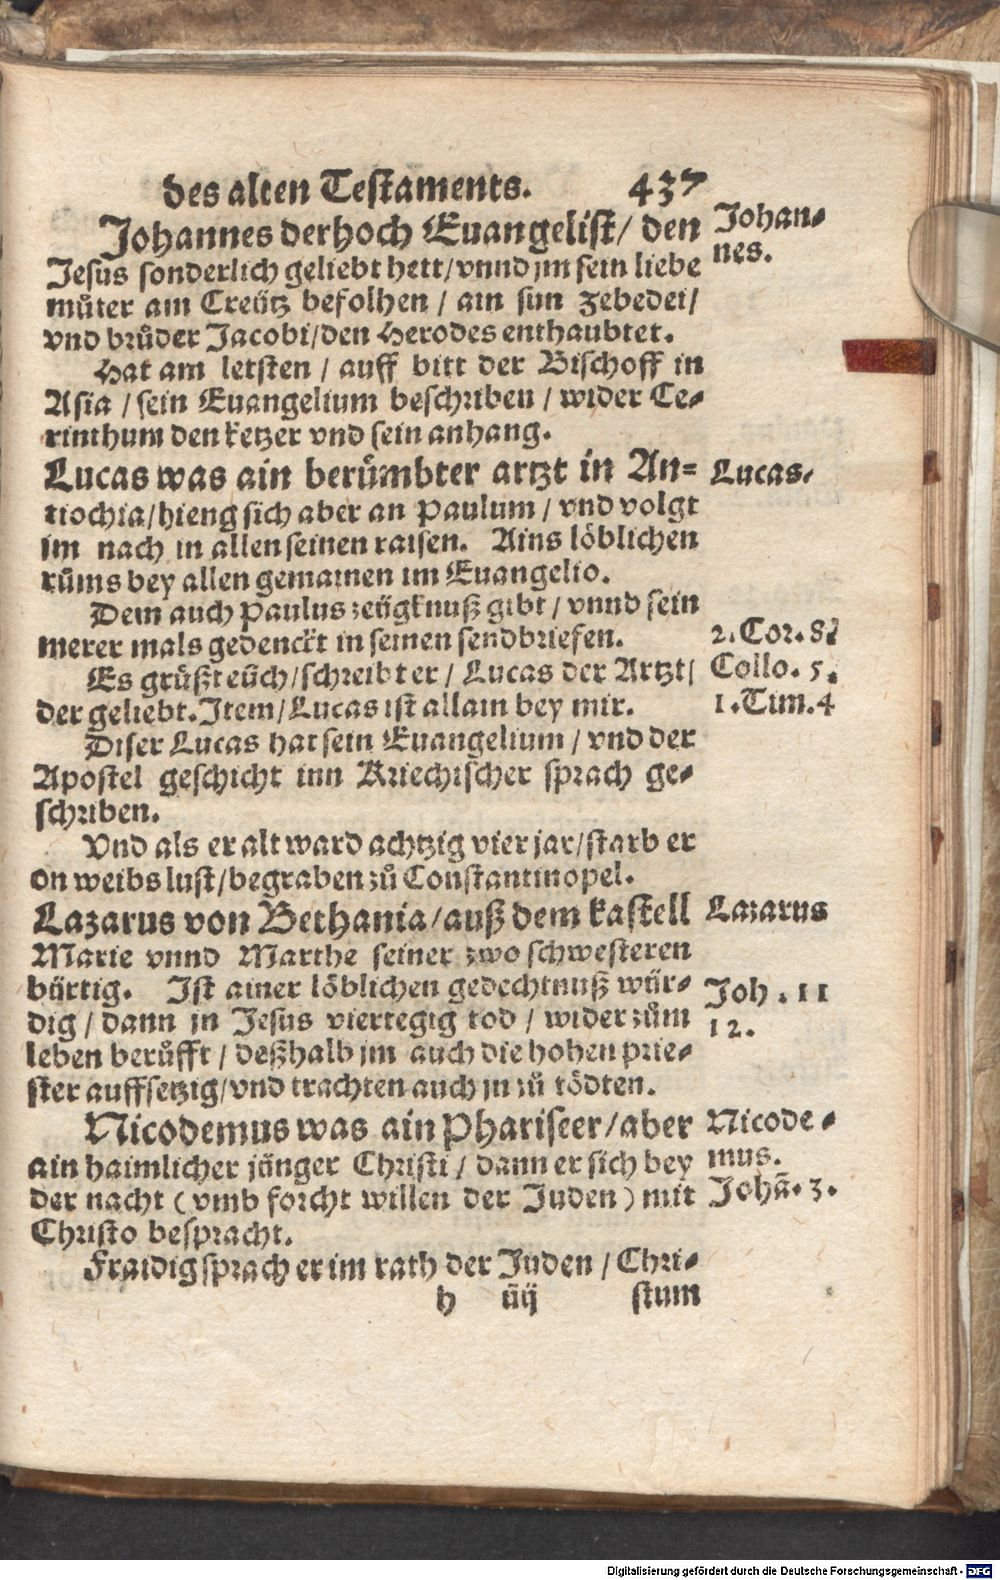 des alten Testaments. 437
Johannes der hoch Euangelist/ den
Jesus sonderlich geliebt hett/vnnd jm sein liebe
můter am Creütz befolhen / ain sun Zebedei/
vnd brůder Jacobi/den Herodes enthaubtet.
Hat am letsten / auff bitt der Bischoff in
Asia / sein Euangelium beschriben / wider Ce-
rinthum den ketzer vnd sein anhang.
Lucas was ain berümbter artzt in An-
tiochia/hieng sich aber an Paulum / vnd volgt
im nach in allen seinen raisen. Ains löblichen
růms bey allen gemainen im Euangelio.
Dem auch Paulus zeügknuß gibt / vnnd sein
merer mals gedenckt in seinen sendbriefen.
Es grüßt eüch/schreibt er / Lucas der Artzt/
der geliebt. Item/Lucas ist allain bey mir.
Diser Lucas hat sein Euangelium / vnd der
Apostel geschicht inn Kriechischer sprach ge-
schriben.
Vnd als er alt ward achtzig vier jar/starb er
on weibs lust/begraben zů Constantinopel.
Lazarus von Bethania/auß dem kastell
Marie vnnd Marthe seiner zwo schwesteren
bürtig. Ist ainer löblichen gedechtnuß wür-
dig / dann jn Jesus viertegig tod / wider zům
leben berůfft / deßhalb jm auch die hohen prie-
ster auffsetzig/vnd trachten auch jn zů tödten.
Nicodemus was ain Phariseer/aber
ain haimlicher jünger Christi / dann er sich bey
der nacht (vmb forcht willen der Juden) mit
Christo bespracht.
Fraidig sprach er im rath der Juden / Chri-
h iiij stum
Johan-
nes.
Lucas.
2. Cor. 8.
Collo. 5.
1. Tim. 4
Lazarus
Joh. 11
12.
Nicode-
mus.
Johā. 3.
Digitalisierung gefördert durch die Deutsche Forschungsgemeinschaft - DFG